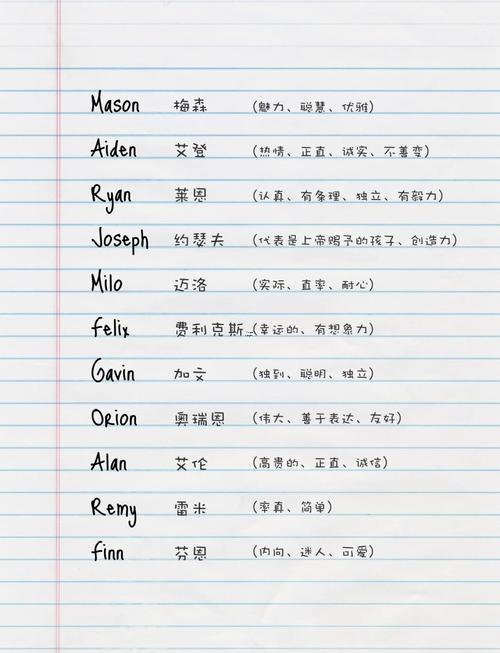 Mason 梅森 (魅力、聪慧、优雅)
Aiden 艾登 (热情、正直、诚实、不善变)
Ryan 莱恩 (认真、有条理、独立、有毅力)
Joseph 约瑟夫 (代表是上帝赐予的孩子、创造力)
Milo 迈洛 (实际、直率、耐心)
Felix 费利克斯 (幸运的、有想象力)
Gavin 加文 (独到、聪明、独立)
Orion 奥瑞恩 (伟大、善于表达、友好)
Alan 艾伦 (高贵的、正直、诚信)
Remy 雷米 (率真、简单)
Finn 芬恩 (内向、迷人、可爱)